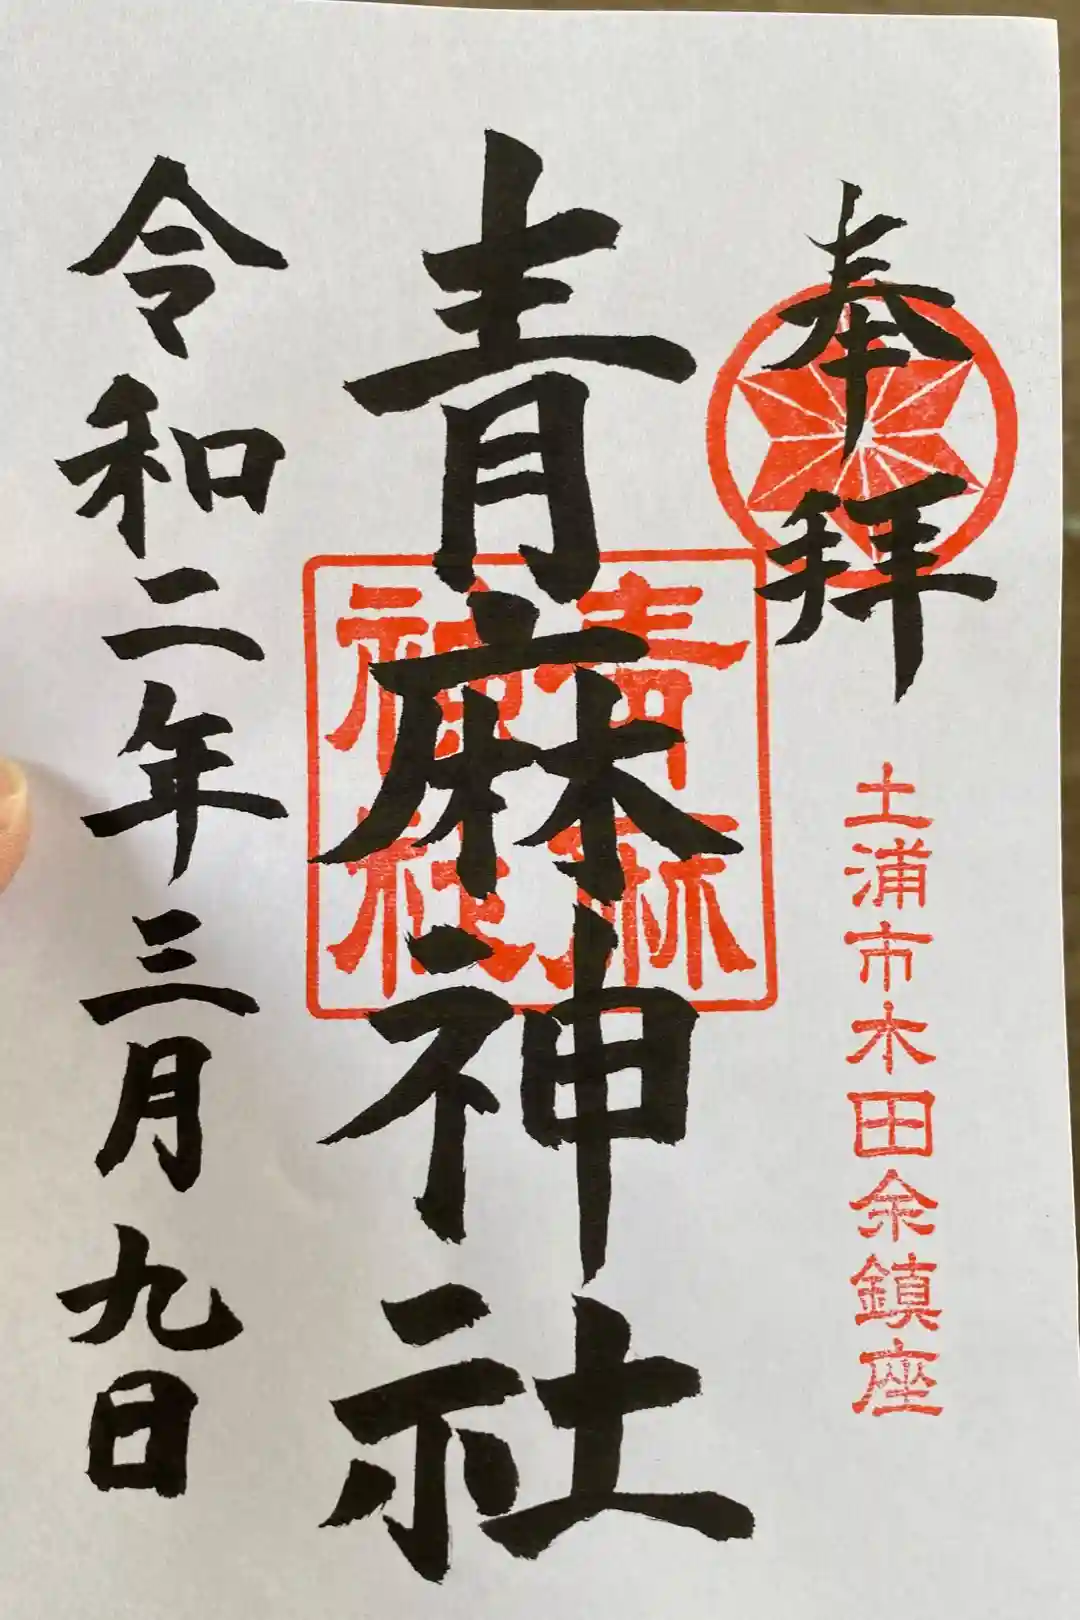 奉拝
土浦市木田余鎮座
青麻神社
青麻神社
令和二年三月九日